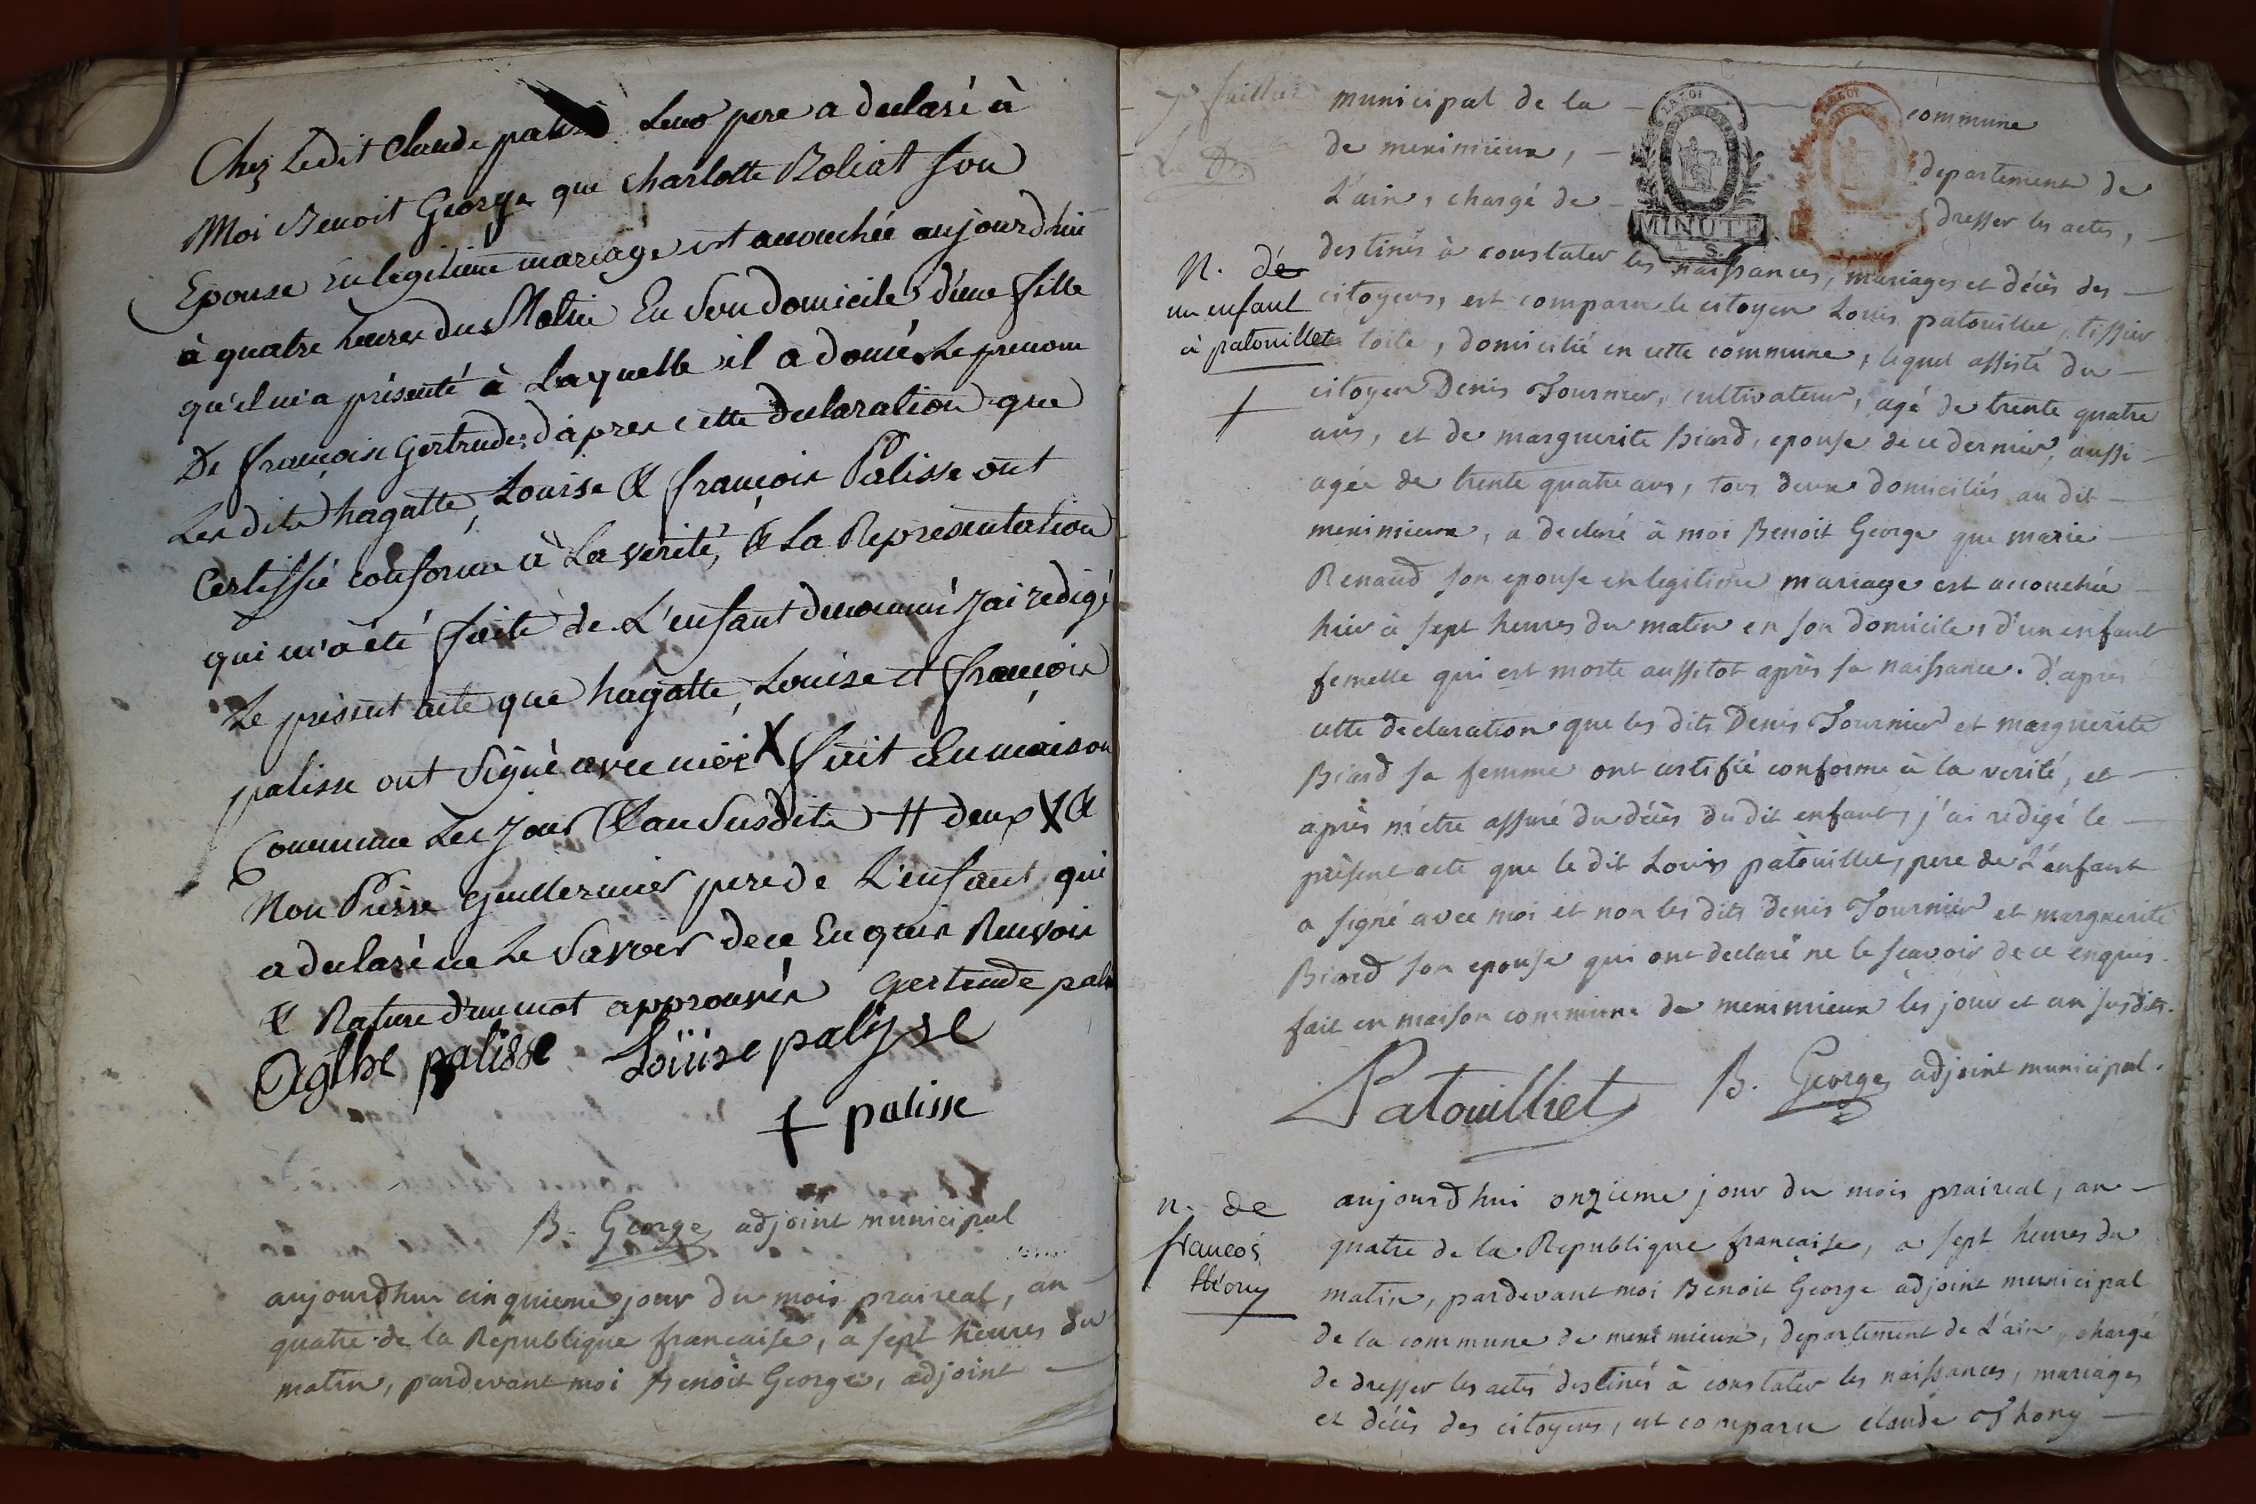 Chez Ledit Claude palisse Leur pere a declaré à
Moi Benoit George que Charlotte Roliat son
Epouse en legitime mariage est acouchée aujourd'hui
à quatre heures du Matin En son domicile d'une fille
qu'il m'a présenté à Laquelle il a doné Le prenom
De françoise Gertrude d'apres cette declaration que
Les dits hagatte, Louise & françois Palisse ont
Certiffié conforme à La vérité, & La Representation
qui m'a été faite de L'enfant denommé J'ai redigé
Le présent acte que hagatte, Louise et françois
palisse ont signé avec moi X fait En maison
Commune Les jour & an susdits # deux X &
Non Pierre Guillermier pere de L'enfant qui
a declaré ne Le savoir de ce Enquis Renvoie
& Rature d'un mot approuvés Gertrude palis
Agthe palisse Loüise palysse
+ palisse
B. George adjoint municipal
aujourdhui cinquieme jour du mois praireal, an
quatre de la Republique francaise, a sept heures du
matin, pardevant moi Benoit George, adjoint
7e feuillet
municipal de la commune
de meximieux, departement de
L'ain, chargé de dresser les actes,
LA LOI
MINUTE
N. de
un enfant
à patouillet
destinés à constater les naissances, mariages et décès des
citoyens, est comparu le citoyen Louis patouillet, tissier
de toile, domicilié en cette commune, lequel assisté du
citoyen Denis Tournier, cultivateur, agé de trente quatre
ans, et de marguerite Biard, epouse de ce dernier, aussi
agée de trente quatre ans, tous deux domiciliés au dit
meximieux, a declaré à moi Benoit George que marie
Renaud son epouse en legitime mariage est accouchée
hier à sept heures du matin en son domicile, d'un enfant
femelle qui est morte aussitot après sa naissance. d'après
cette declaration que les dits Denis Tournier et marguerite
Biard sa femme ont certifié conforme à la vérité, et
après m'être assuré du décès du dit enfant, j'ai rédigé le
présent acte que le dit Louis patouillet, pere de L'enfant
a signé avec moi et non les dits Denis Tournier et marguerite
Biard son epouse qui ont declaré ne le scavoir de ce enquis.
fait en maison commune de meximieux les jour et an susdits.
Patouilliet B. George adjoint municipal.
n. de
francois
théony
aujourdhui onzieme jour du mois praireal, an
quatre de la Republique francaise, a sept heures du
matin, pardevant moi Benoit George adjoint municipal
de la commune de meximieux, departement de L'ain, chargé
de dresser les actes destinés à constater les naissances, mariages
et décès des citoyens, est comparu claude